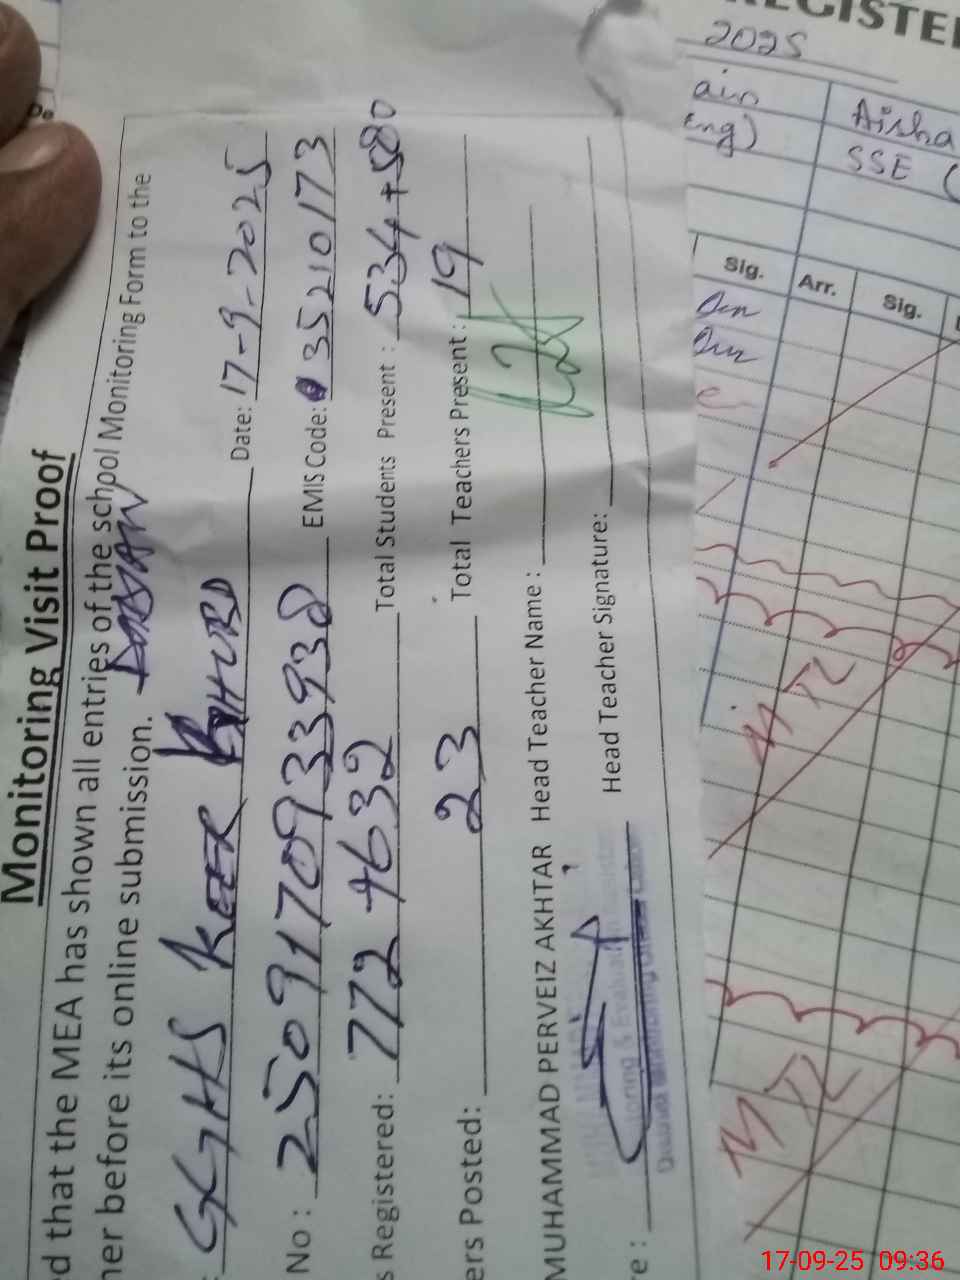 Monitoring Visit Proof
d that the MEA has shown all entries of the school Monitoring Form to the
her before its online submission.
: GGHS KEER KHURD Date: 17-9-2025
No : 250917093393 8 EMIS Code: 35210173
s Registered: 772+632 Total Students Present : 534+580
ers Posted: 23 Total Teachers Present : 19
MUHAMMAD PERVEIZ AKHTAR Head Teacher Name :
re : Head Teacher Signature:
2025
ain
Eng)
Aisha
SSE (
Sig. Arr. Sig.
17-09-25 09:36